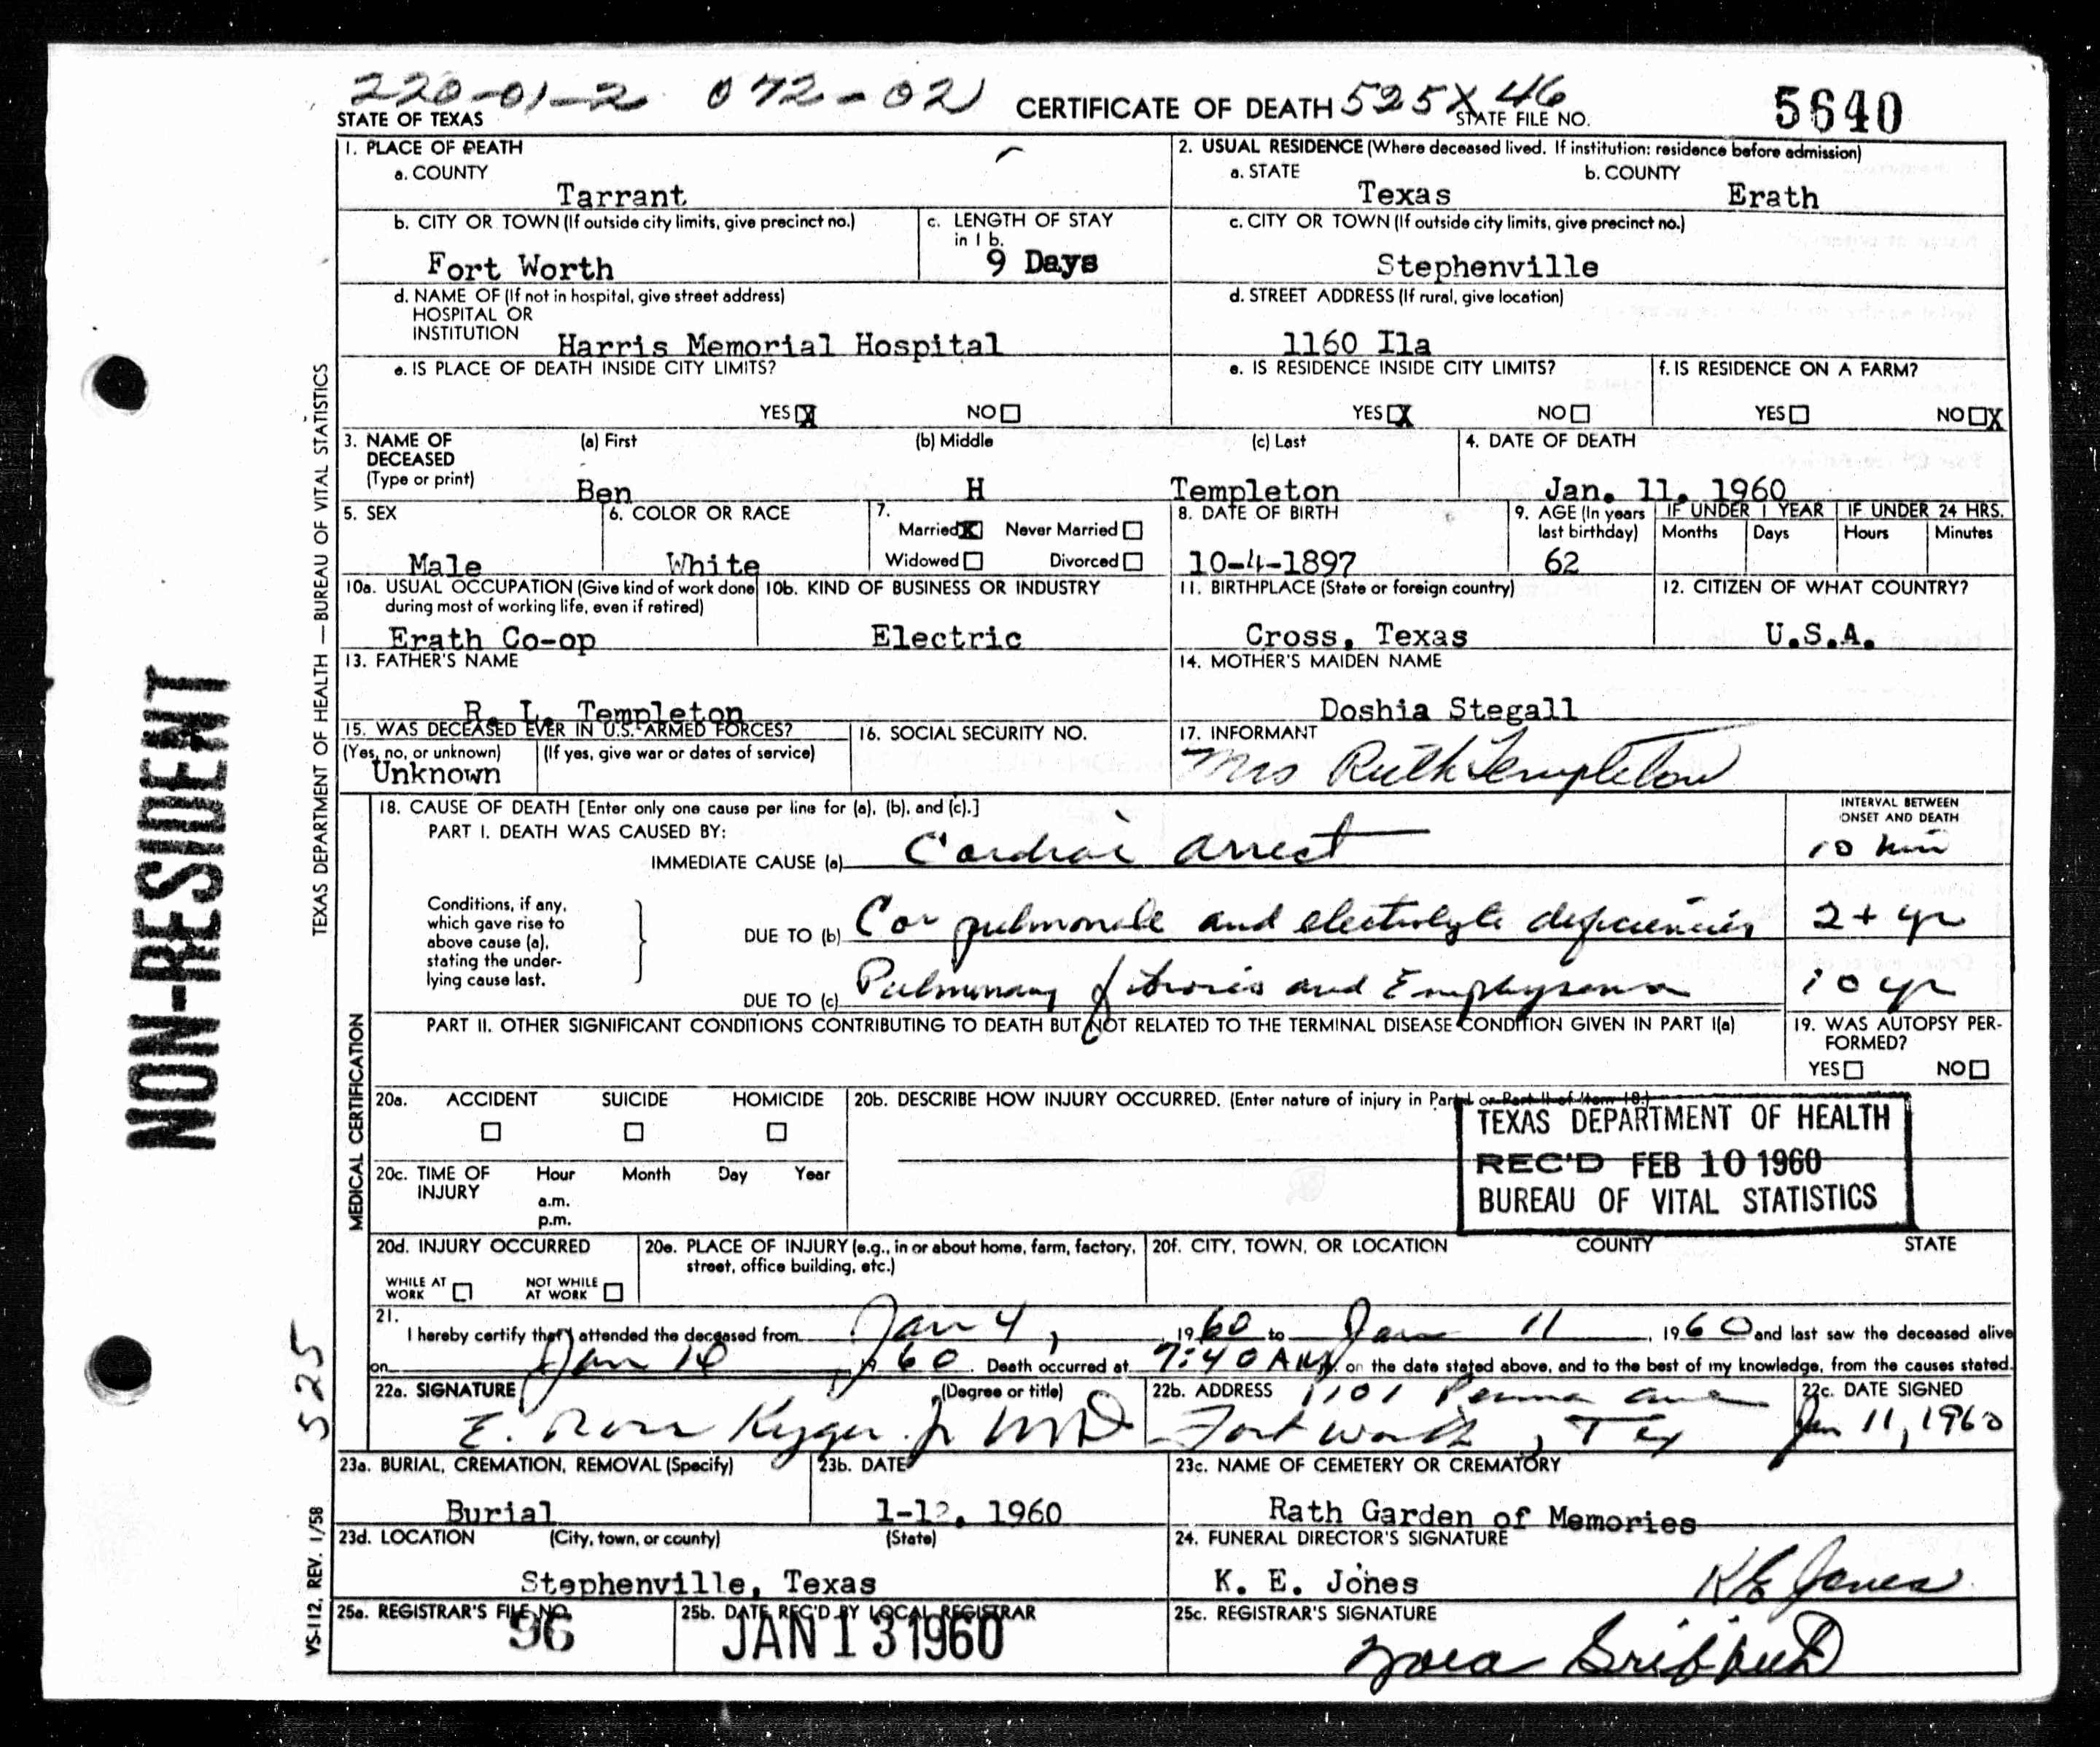 220-01-2 072-02 CERTIFICATE OF DEATH 525X46 5640
STATE OF TEXAS STATE FILE NO.
1. PLACE OF DEATH
a. COUNTY
Tarrant
2. USUAL RESIDENCE (Where deceased lived. If institution: residence before admission)
a. STATE b. COUNTY
Texas Erath
b. CITY OR TOWN (If outside city limits, give precinct no.)
Fort Worth
c. LENGTH OF STAY
in 1 b.
9 Days
c. CITY OR TOWN (If outside city limits, give precinct no.)
Stephenville
d. NAME OF (If not in hospital, give street address)
HOSPITAL OR
INSTITUTION Harris Memorial Hospital
d. STREET ADDRESS (If rural, give location)
1160 Ila
e. IS PLACE OF DEATH INSIDE CITY LIMITS?
YES X NO
e. IS RESIDENCE INSIDE CITY LIMITS?
YES X NO
f. IS RESIDENCE ON A FARM?
YES NO X
3. NAME OF
DECEASED
(Type or print)
(a) First (b) Middle (c) Last
Ben H Templeton
4. DATE OF DEATH
Jan. 11, 1960
5. SEX
Male
6. COLOR OR RACE
White
7.
Married X Never Married
Widowed Divorced
8. DATE OF BIRTH
10-4-1897
9. AGE (In years
last birthday)
62
IF UNDER 1 YEAR
Months Days
IF UNDER 24 HRS.
Hours Minutes
10a. USUAL OCCUPATION (Give kind of work done
during most of working life, even if retired)
Erath Co-op
10b. KIND OF BUSINESS OR INDUSTRY
Electric
11. BIRTHPLACE (State or foreign country)
Cross, Texas
12. CITIZEN OF WHAT COUNTRY?
U.S.A.
13. FATHER'S NAME
R. L. Templeton
14. MOTHER'S MAIDEN NAME
Doshia Stegall
15. WAS DECEASED EVER IN U.S. ARMED FORCES?
(Yes, no, or unknown) (If yes, give war or dates of service)
Unknown
16. SOCIAL SECURITY NO.
17. INFORMANT
Mrs Ruth Templeton
MEDICAL CERTIFICATION
18. CAUSE OF DEATH [Enter only one cause per line for (a), (b), and (c).]
PART I. DEATH WAS CAUSED BY:
IMMEDIATE CAUSE (a) Cardiac arrest
INTERVAL BETWEEN
ONSET AND DEATH
10 min
Conditions, if any,
which gave rise to
above cause (a),
stating the under-
lying cause last.
DUE TO (b) Cor pulmonale and electrolyte deficiencies 2+ yr
DUE TO (c) Pulmonary fibrosis and Emphysema 10 yr
PART II. OTHER SIGNIFICANT CONDITIONS CONTRIBUTING TO DEATH BUT NOT RELATED TO THE TERMINAL DISEASE CONDITION GIVEN IN PART I(a)
19. WAS AUTOPSY PER-
FORMED?
YES NO
20a. ACCIDENT SUICIDE HOMICIDE
20b. DESCRIBE HOW INJURY OCCURRED. (Enter nature of injury in Part I or Part II of Item 18.)
TEXAS DEPARTMENT OF HEALTH
REC'D FEB 10 1960
BUREAU OF VITAL STATISTICS
20c. TIME OF
INJURY
Hour Month Day Year
a.m.
p.m.
20d. INJURY OCCURRED
WHILE AT
WORK
NOT WHILE
AT WORK
20e. PLACE OF INJURY (e.g., in or about home, farm, factory,
street, office building, etc.)
20f. CITY, TOWN, OR LOCATION COUNTY STATE
21.
I hereby certify that I attended the deceased from Jan 4, 1960 to Jan 11, 1960 and last saw the deceased alive
on Jan 10, 1960. Death occurred at 7:40 A.m. on the date stated above, and to the best of my knowledge, from the causes stated.
22a. SIGNATURE (Degree or title)
E. Ross Kyger Jr MD
22b. ADDRESS 1101 Penna ave
Fort Worth, Tex
22c. DATE SIGNED
Jan 11, 1960
23a. BURIAL, CREMATION, REMOVAL (Specify)
Burial
23b. DATE
1-12, 1960
23c. NAME OF CEMETERY OR CREMATORY
Rath Garden of Memories
23d. LOCATION (City, town, or county) (State)
Stephenville, Texas
24. FUNERAL DIRECTOR'S SIGNATURE
K. E. Jones K E Jones
25a. REGISTRAR'S FILE NO.
96
25b. DATE REC'D BY LOCAL REGISTRAR
JAN 13 1960
25c. REGISTRAR'S SIGNATURE
NON-RESIDENT
TEXAS DEPARTMENT OF HEALTH — BUREAU OF VITAL STATISTICS
525
VS-112, REV. 1/58